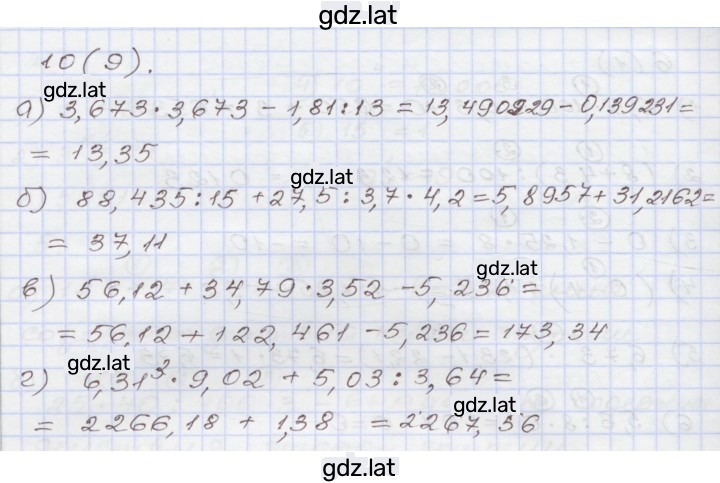 gdz.lat
10(9).
gdz.lat
а) 3,673·3,673 - 1,81:13 = 13,490929 - 0,139231 =
= 13,35
gdz.lat
б) 88,435:15 + 27,5:3,7·4,2 = 5,8957 + 31,2162 =
= 37,11
gdz.lat
в) 56,12 + 34,79·3,52 - 5,236 =
= 56,12 + 122,461 - 5,236 = 173,34
gdz.lat
г) 6,31³·9,02 + 5,03:3,64 =
gdz.lat
= 2266,18 + 1,38 = 2267,56
gdz.lat